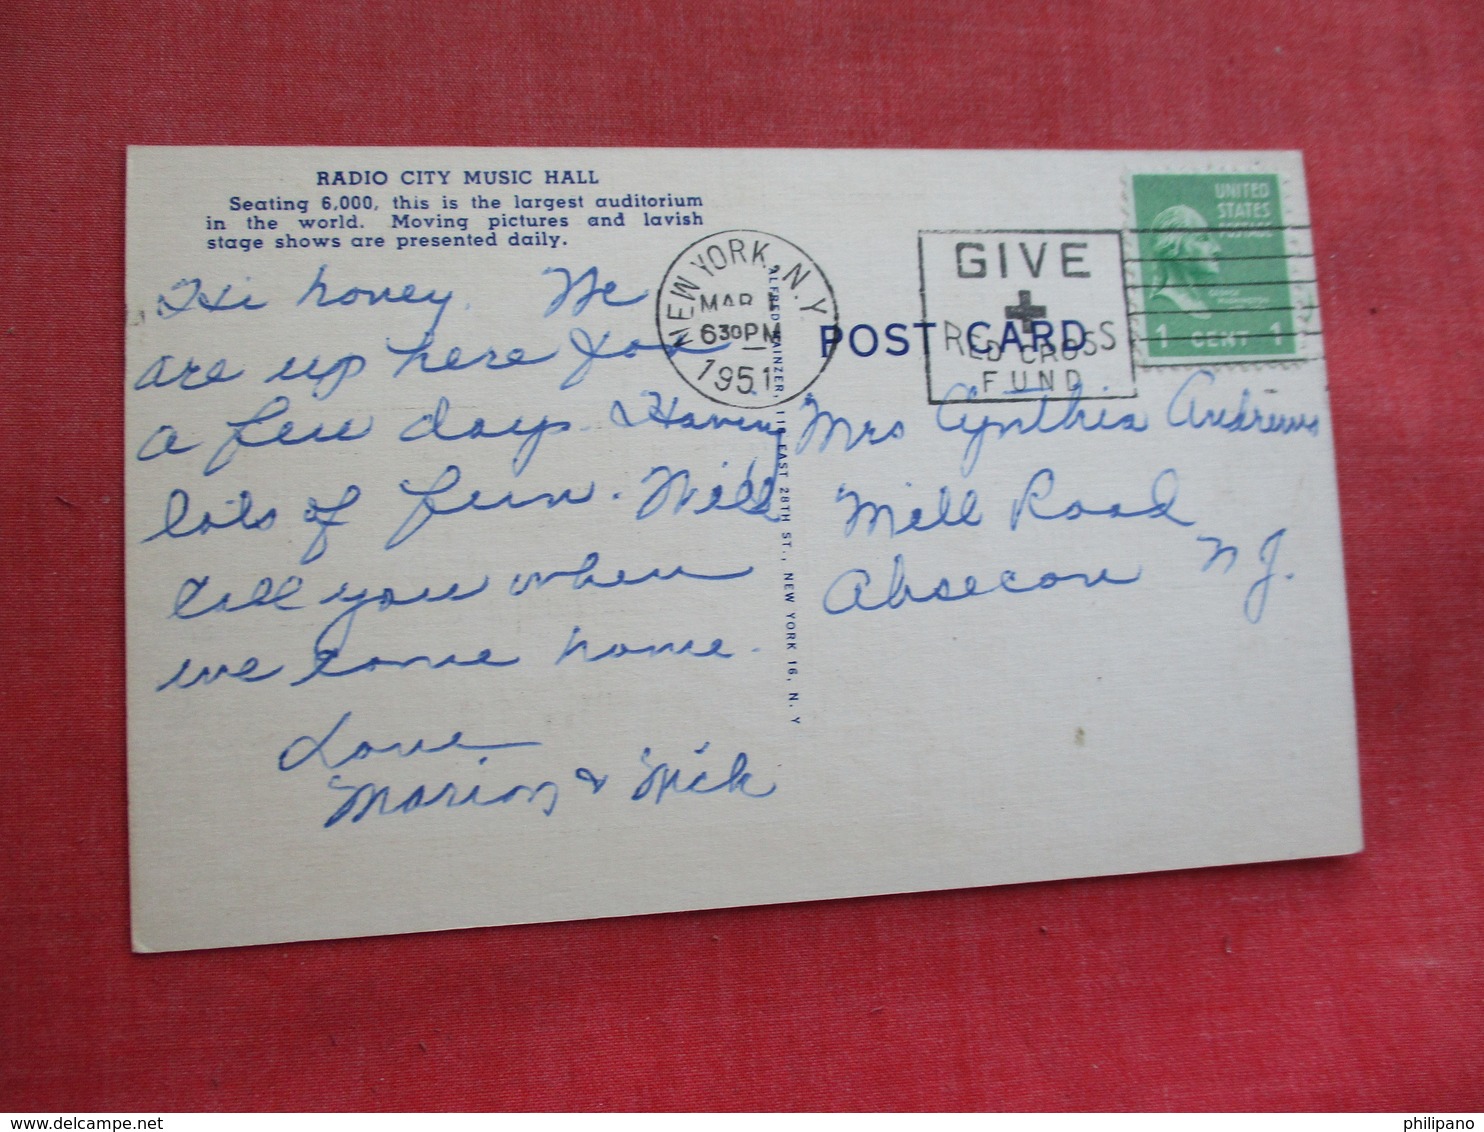 RADIO CITY MUSIC HALL
Seating 6,000, this is the largest auditorium
in the world. Moving pictures and lavish
stage shows are presented daily.
Hi honey. We
are up here for
a few days & Having
lots of fun. Will
tell you when
we come home.
Love
Marion & Nick
NEW YORK, N.Y.
MAR 1
630PM
1951
ALFRED MAINZER, 118 EAST 28TH ST., NEW YORK 16, N. Y
POST CARD
GIVE
RED CROSS
FUND
UNITED
STATES
POSTAGE
GEORGE
WASHINGTON
1 CENT 1
Mrs Cynthia Andrews
Mill Road
Absecon N J.
www.delcampe.net
philipano